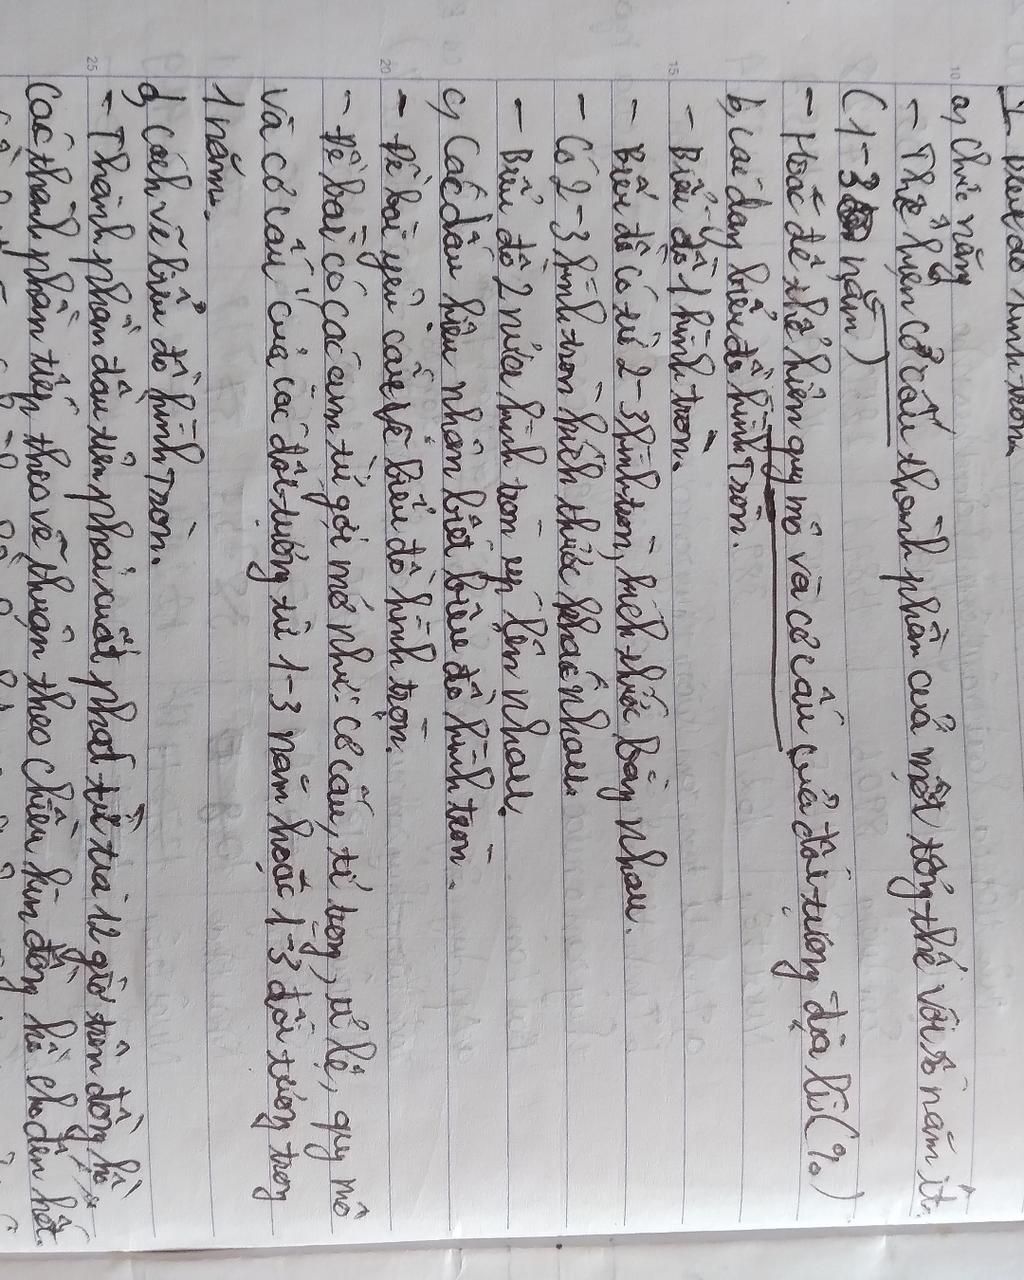 1. Biểu đồ hình tròn
a, Chức năng
- Thể hiện cơ cấu thành phần của một tổng thể với số năm ít
(1-3 năm)
- Hoặc để thể hiện quy mô và cơ cấu của đối tượng địa lí (%)
b, Các dạng biểu đồ hình tròn.
- Biểu đồ 1 hình tròn.
- Biểu đồ có từ 2-3 hình tròn, kích thước bằng nhau.
- Có 2-3 hình tròn kích thước khác nhau.
- Biểu đồ 2 nửa hình tròn úp lên nhau.
c, Các dấu hiệu nhận biết biểu đồ hình tròn.
- Đề bài yêu cầu vẽ biểu đồ hình tròn.
- Đề bài có các cụm từ gợi mở như: cơ cấu, tỉ trọng, tỉ lệ, quy mô
và cơ cấu của các đối tượng từ 1-3 năm hoặc 1-3 đối tượng trong
1 năm.
d, Cách vẽ biểu đồ hình tròn.
- Thành phần đầu tiên phải xuất phát từ tia 12 giờ trên đồng hồ
các thành phần tiếp theo vẽ thuận theo chiều kim đồng hồ cho đến hết.